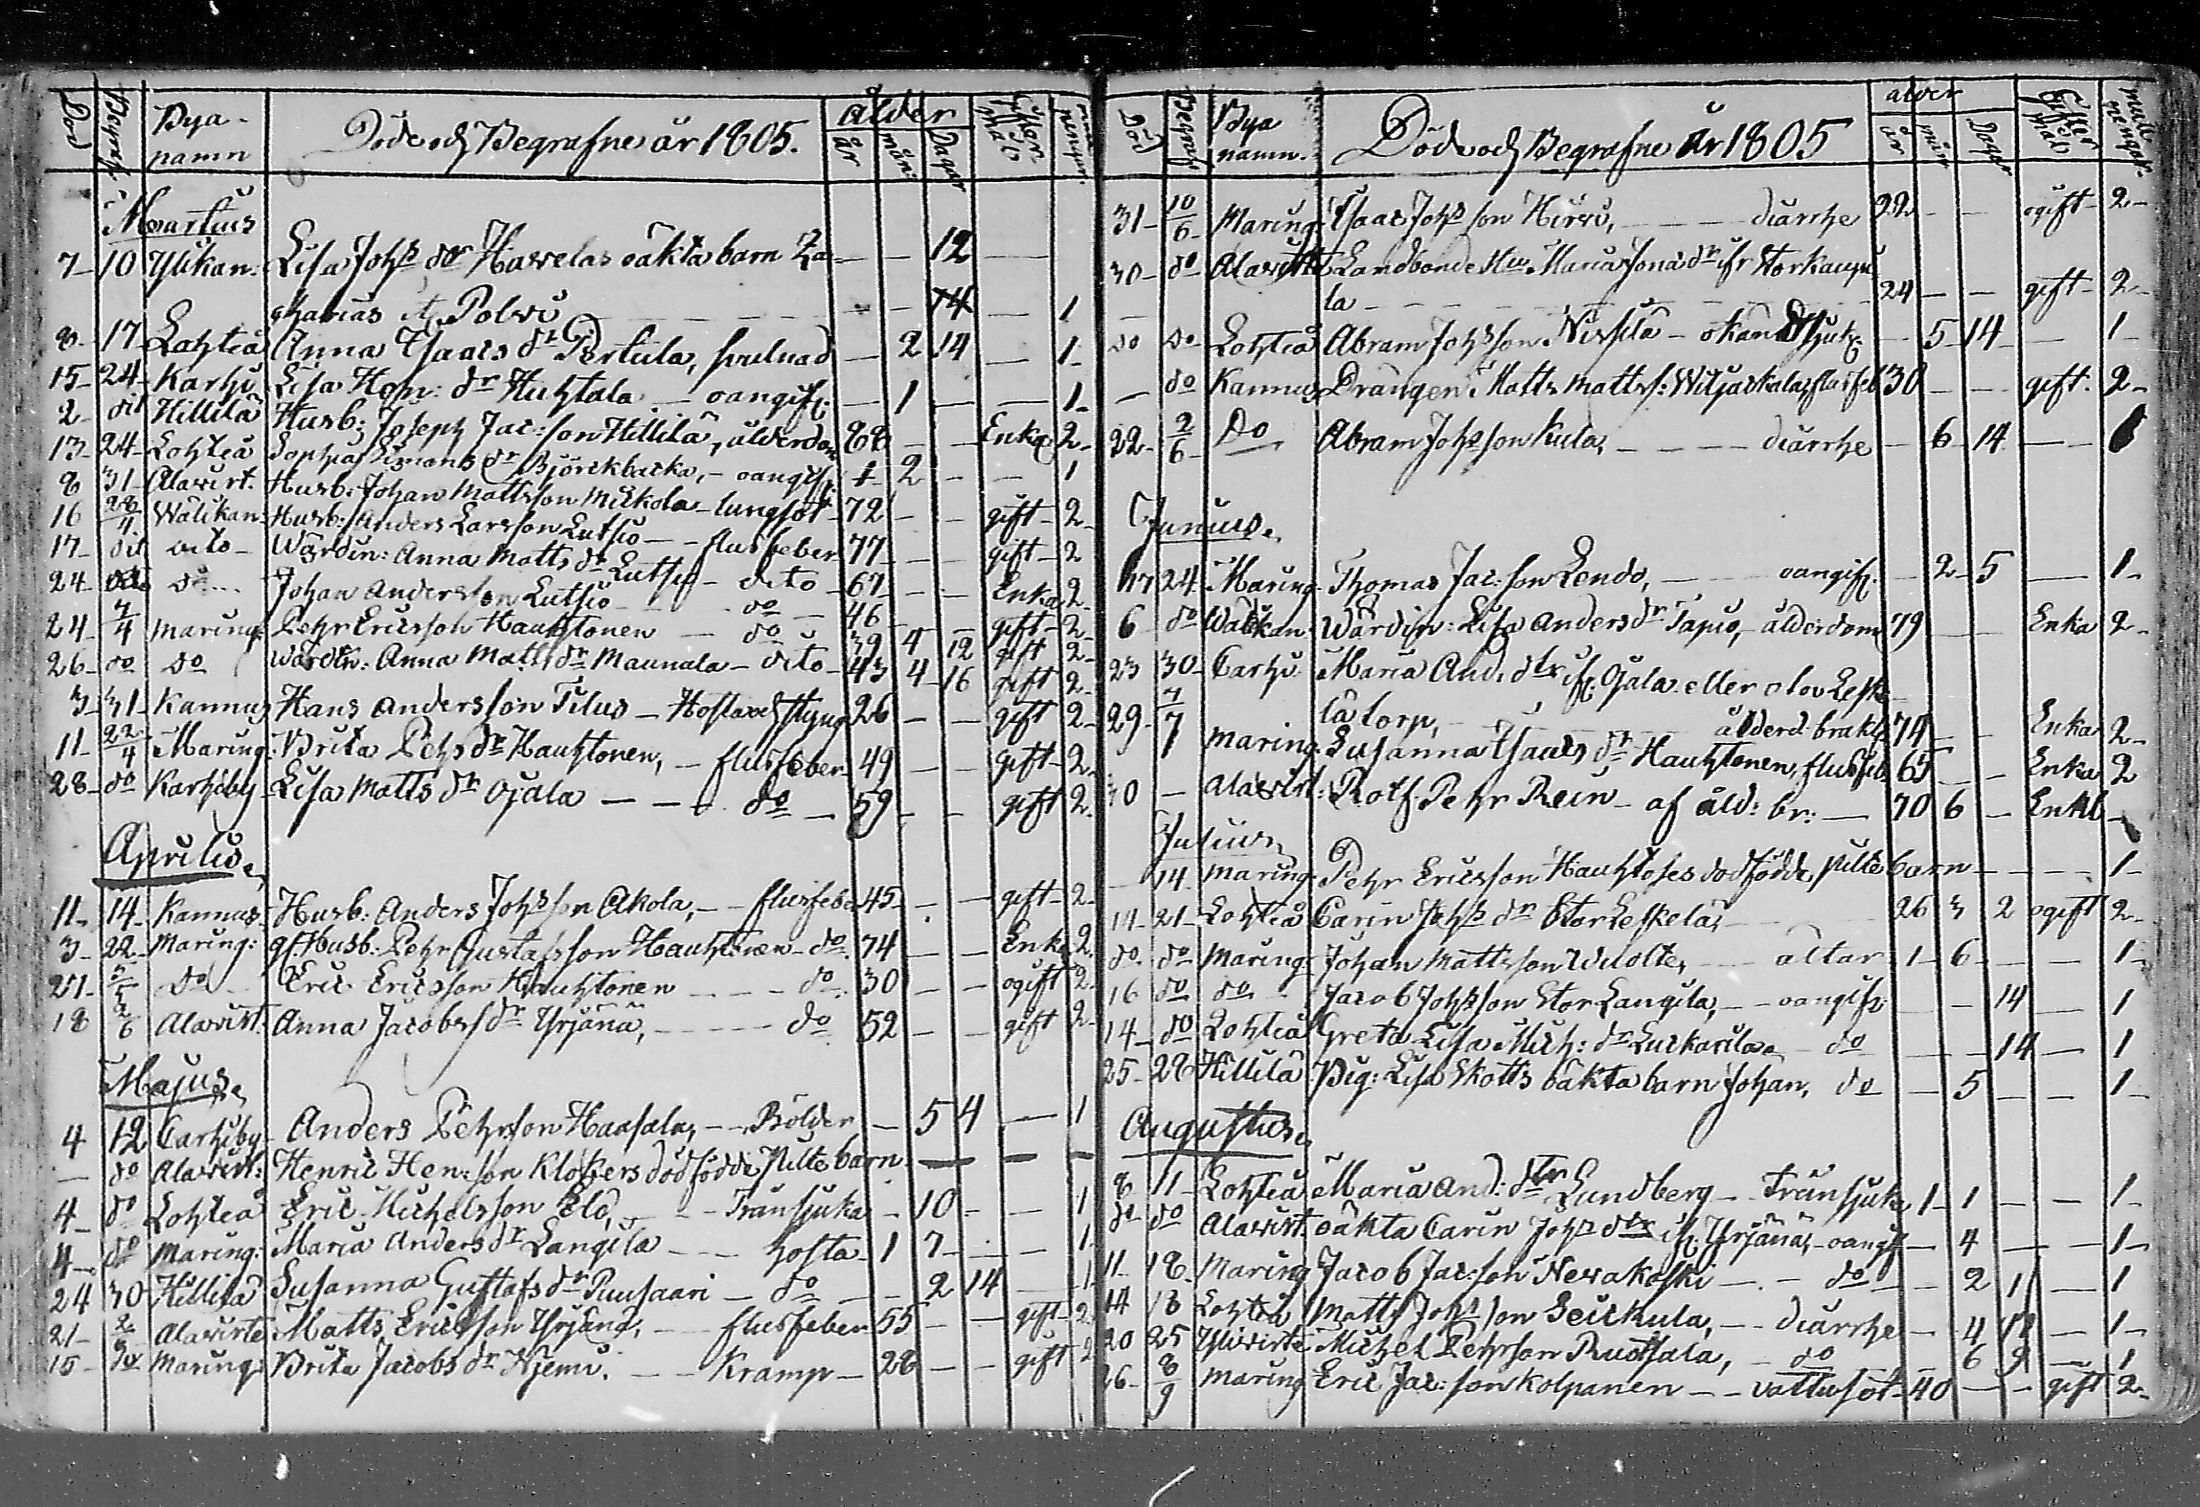 Död Begrafn. Bya-namn Döde och Begrafne år 1805. ålder år mån: Dagar
Martius
7 10 Ylikan: Lisa Johs dr Havelas oäkta barn Za 12
charias Polvi 74 1
8 17 Lohteå Anna Isaacs dr Pertula, 2 14 1
15 24 Karhi Lisa Hen: dr Huhtala oangif: 1 1
2 dit Hillilä Husb: Joseph Jac: son Hillilä, ålderdom 88 Enka 2
13 24 Lohteå Sophia Simons dr Björckbacka, oangif: 1 2 1
8 31 Alavirt. Husb: Johan Mattsson Mickola lungsot 72 gift 2
16 28/4 Wälikan: Husb: Anders Larsson Lutsio flussfeber 77 gift 2
17 dit dito Wärdin: Anna Matts dr Lutsio dito 67 Enka 2
24 do Johan Andersson Lutsio do 46 gift 2
24 7/4 maring: Pehr Ericsson Hauhtonen do 39 4 12 gift 2
26 do do Wärdin: Anna Matts dr Maunala dito 43 4 16 gift 2
3 31 Kannus Hans Andersson Tilus Hosta och styng 26 gift 2
11 22/4 Maring: Brita Pehrs dr Hauhtonen, flussfeber 49 gift 2
28 do Karhiby Lisa Matts dr Ojala do 59 gift 2
Aprilis
11 14 Kannus Husb: Anders Johs son Akola, flussfeber 45 gift 2
3 22 Maring: gf. Husb: Pehr Gustafsson Hauhtonen do 74 Enkl 2
21 do Eric Ericsson Hauhtonen do 30 ogift 2
18 2/6 Alavirt. Anna Jacobs dr Yrjänä, do 52 gift 2
Majus
4 12 Carhiby Anders Pehrsson Haasala, Bölder 5 4 1
do Alavirt: Henric Hen: son Klockers dödfödde Pilte barn
4 do Lohteå Eric Michelsson Elo, Trånsjuka 10 1
4 do Maring: Maria Anders dr Langila hosta 1 7 1
24 30 Hillilä Susanna Gustafs dr Puusaari do 2 14 1
21 2/6 Alavirte Matts Ericsson Yrjänä, flussfeber 55 gift 2
15 do Maring: Brita Jacobs dr Niemi. Kramp 28 gift 2
Död Begrafn Bya namn. Döde och Begrafne År 1805 ålder år mån Dagar
31 10/6 Maring: Isaac Johs son Hirvi, diarrhe 22 ogift 2
30 do Alavirte Landbonde Hu Maria Jonas dr ifr Storkangi
la 24 gift 2
do do Lohteå Abram Johs son Nissilä okänd sjuk: 5 14 1
do Kannus Drängen Matts Mattss: Wiljackala, flusfeb 30 gift 2
22 2/6 Do Abram Johs son Kula, diarrhe 6 14 1
Junius
17 24 Maring: Thomas Jac: son Lendo, oangif: 2 5 1
6 do Wälikan: Wärdin: Lisa Anders dr Tapio, ålderdom 79 Enka 2
23 30 Carhi Maria And. dtr if. Ojala eller olov Leske
lä torp, ålderd: bräckl: 74 Enka 2
29 7/7 maring: Susanna Isaacs dr Hauhtonen, flussfeb. 65 Enka 2
30 Alavirt: Rotf. Pehr Rein af åld: br: 70 6 Enkl
Julius
14 maring: Pehr Ericsson Hauhtoses dödfödde pilte barn 1
14 21 Lohteå Carin Johs dr Stor Leskelä, 26 3 2 ogift 2
do do Maring: Johan Mattsson Wuolte, altar 1 6 1
16 do do Jacob Johs son Stor Langila, oangif: 14 1
14 do Lohteå Greta Lisa Mich: dr Luckarila do 14 1
25 28 Hillilä Pig: Lisa Skotts oäkta barn Johan, do 5 1
Augustus
8 11 Lohteå Maria And: dtr Lundberg Trånsjuka 1 1 1
do do Alavirt. oäkta Carin Johs dtr if. Yrjänä, oangif 4 1
11 18 Maring Jacob Jac: son Nevakoski do 2 11 1
14 18 Lohteå Matts Johs son Seickula, diarrhe 4 1
20 25 Ylivirte Michel Pehrson Ruotsala, do 6 9 1
26 8/9 Maring Eric Jac: son Kolpanen vattusot 40 gift 2